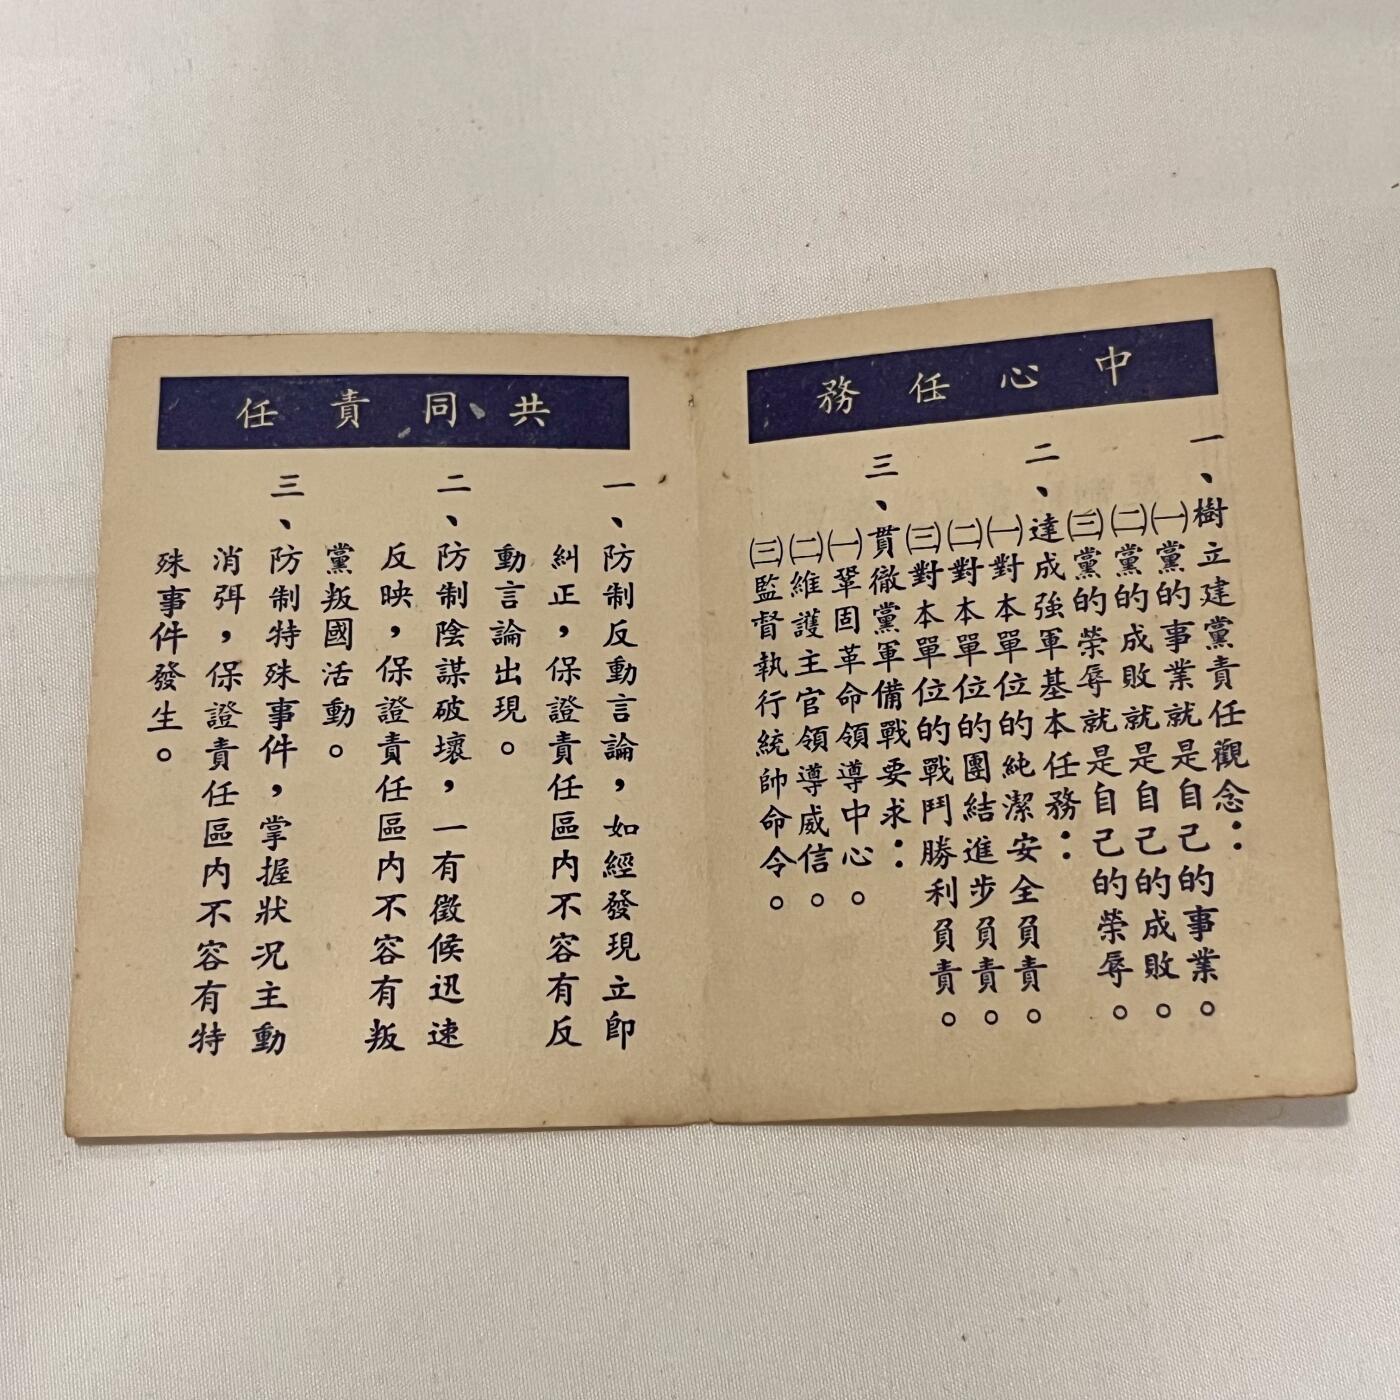 中心任務
一、樹立建黨責任觀念：
㈠黨的事業就是自己的事業。
㈡黨的成敗就是自己的成敗。
㈢黨的榮辱就是自己的榮辱。
二、達成強軍基本任務：
㈠對本單位的純潔安全負責。
㈡對本單位的團結進步負責。
㈢對本單位的戰鬥勝利負責。
三、貫徹黨軍備戰要求：
㈠鞏固革命領導中心。
㈡維護主官領導威信。
㈢監督執行統帥命令。
共同責任
一、防制反動言論，如經發現立即
糾正，保證責任區內不容有反
動言論出現。
二、防制陰謀破壞，一有徵候迅速
反映，保證責任區內不容有叛
黨叛國活動。
三、防制特殊事件，掌握狀況主動
消弭，保證責任區內不容有特
殊事件發生。